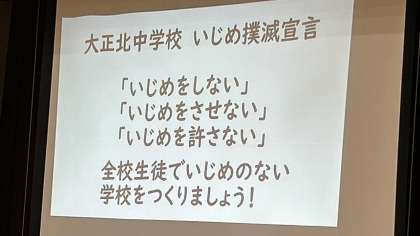 大正北中学校 いじめ撲滅宣言
「いじめをしない」
「いじめをさせない」
「いじめを許さない」
全校生徒でいじめのない
学校をつくりましょう!